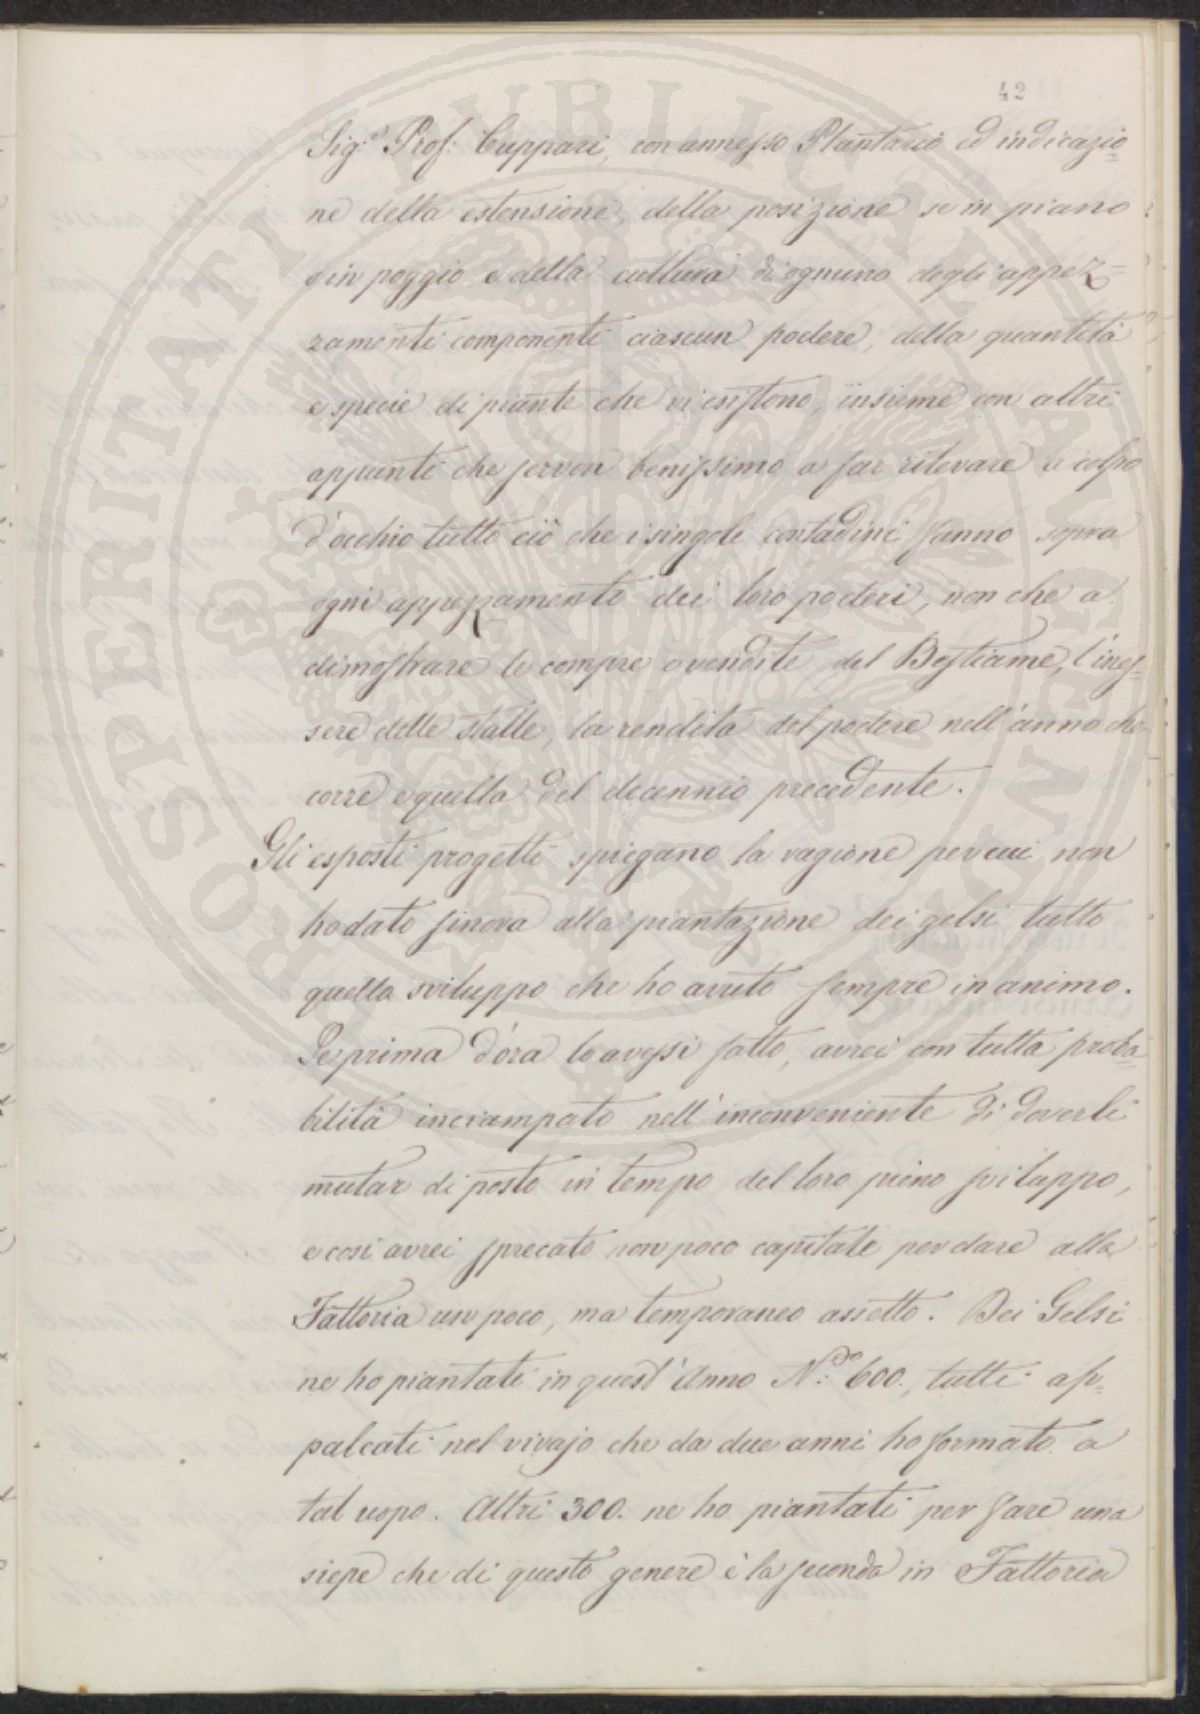 42
Sig.r Prof: Cuppari, con annesso Plantario ed indicazio=
ne della estensione, della posizione se in piano
o in poggio e della cultura di ognuno degli appez=
zamenti componenti ciascun podere, della quantità
e specie di piante che vi esistono, insieme con altri
appunti che servon benissimo a far rilevare a colpo
d'occhio tutto ciò che i singoli contadini fanno sopra
ogni appezzamento dei loro poderi, non che a
dimostrare le compre e vendite del Bestiame, l'ines=
sere delle stalle, la rendita del podere nell'anno che
corre e quella del decennio precedente.
Gli esposti progetti spiegano la ragione per cui non
ho dato finora alla piantazione dei gelsi tutto
quello sviluppo che ho avuto sempre in animo.
Se prima d'ora lo avessi fatto, avrei con tutta proba=
bilità inciampato nell'inconveniente di doverli
mutar di posto in tempo del loro pieno sviluppo,
e così avrei sprecato non poco capitale per dare alla
Fattoria un poco, ma temporaneo assetto. Dei Gelsi
ne ho piantati in quest'Anno N.do 600., tutti ap=
palcati nel vivajo che da due anni ho formato a
tal uopo. Altri 300. ne ho piantati per fare una
siepe che di questo genere è la seconda in Fattoria
PROSPERITATI PVBLICAE AVGENDAE